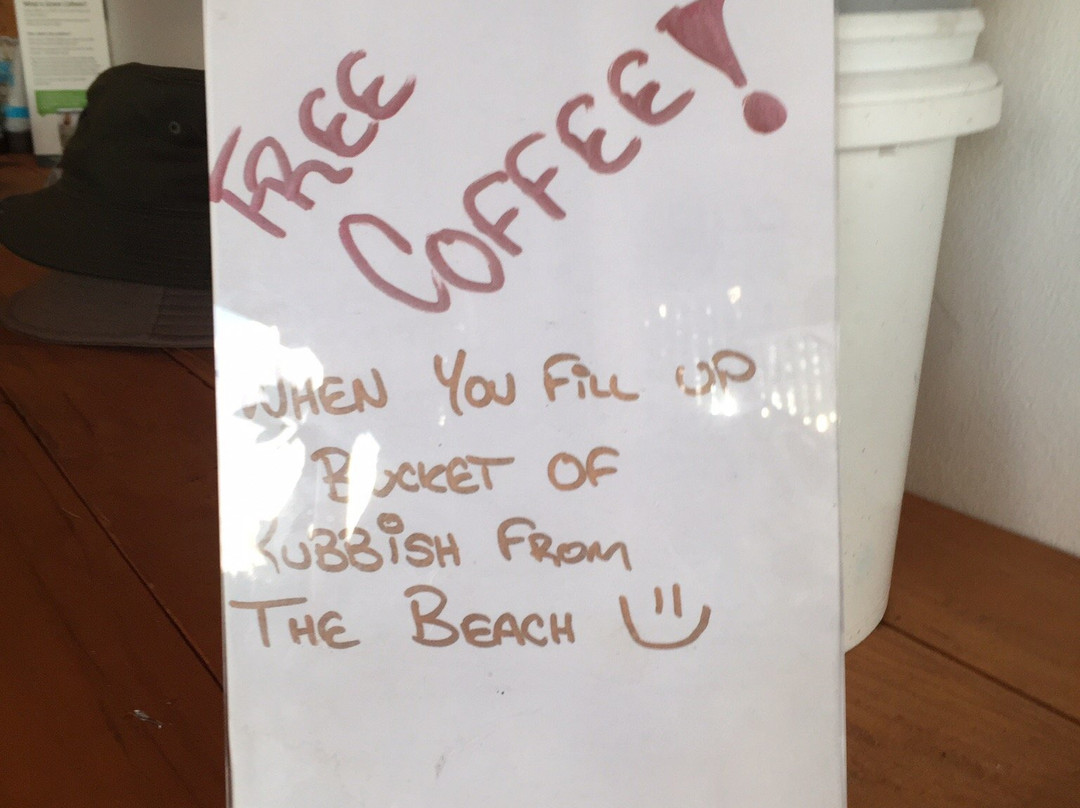 FREE
COFFEE!
WHEN YOU FILL UP
BUCKET OF
RUBBISH FROM
THE BEACH